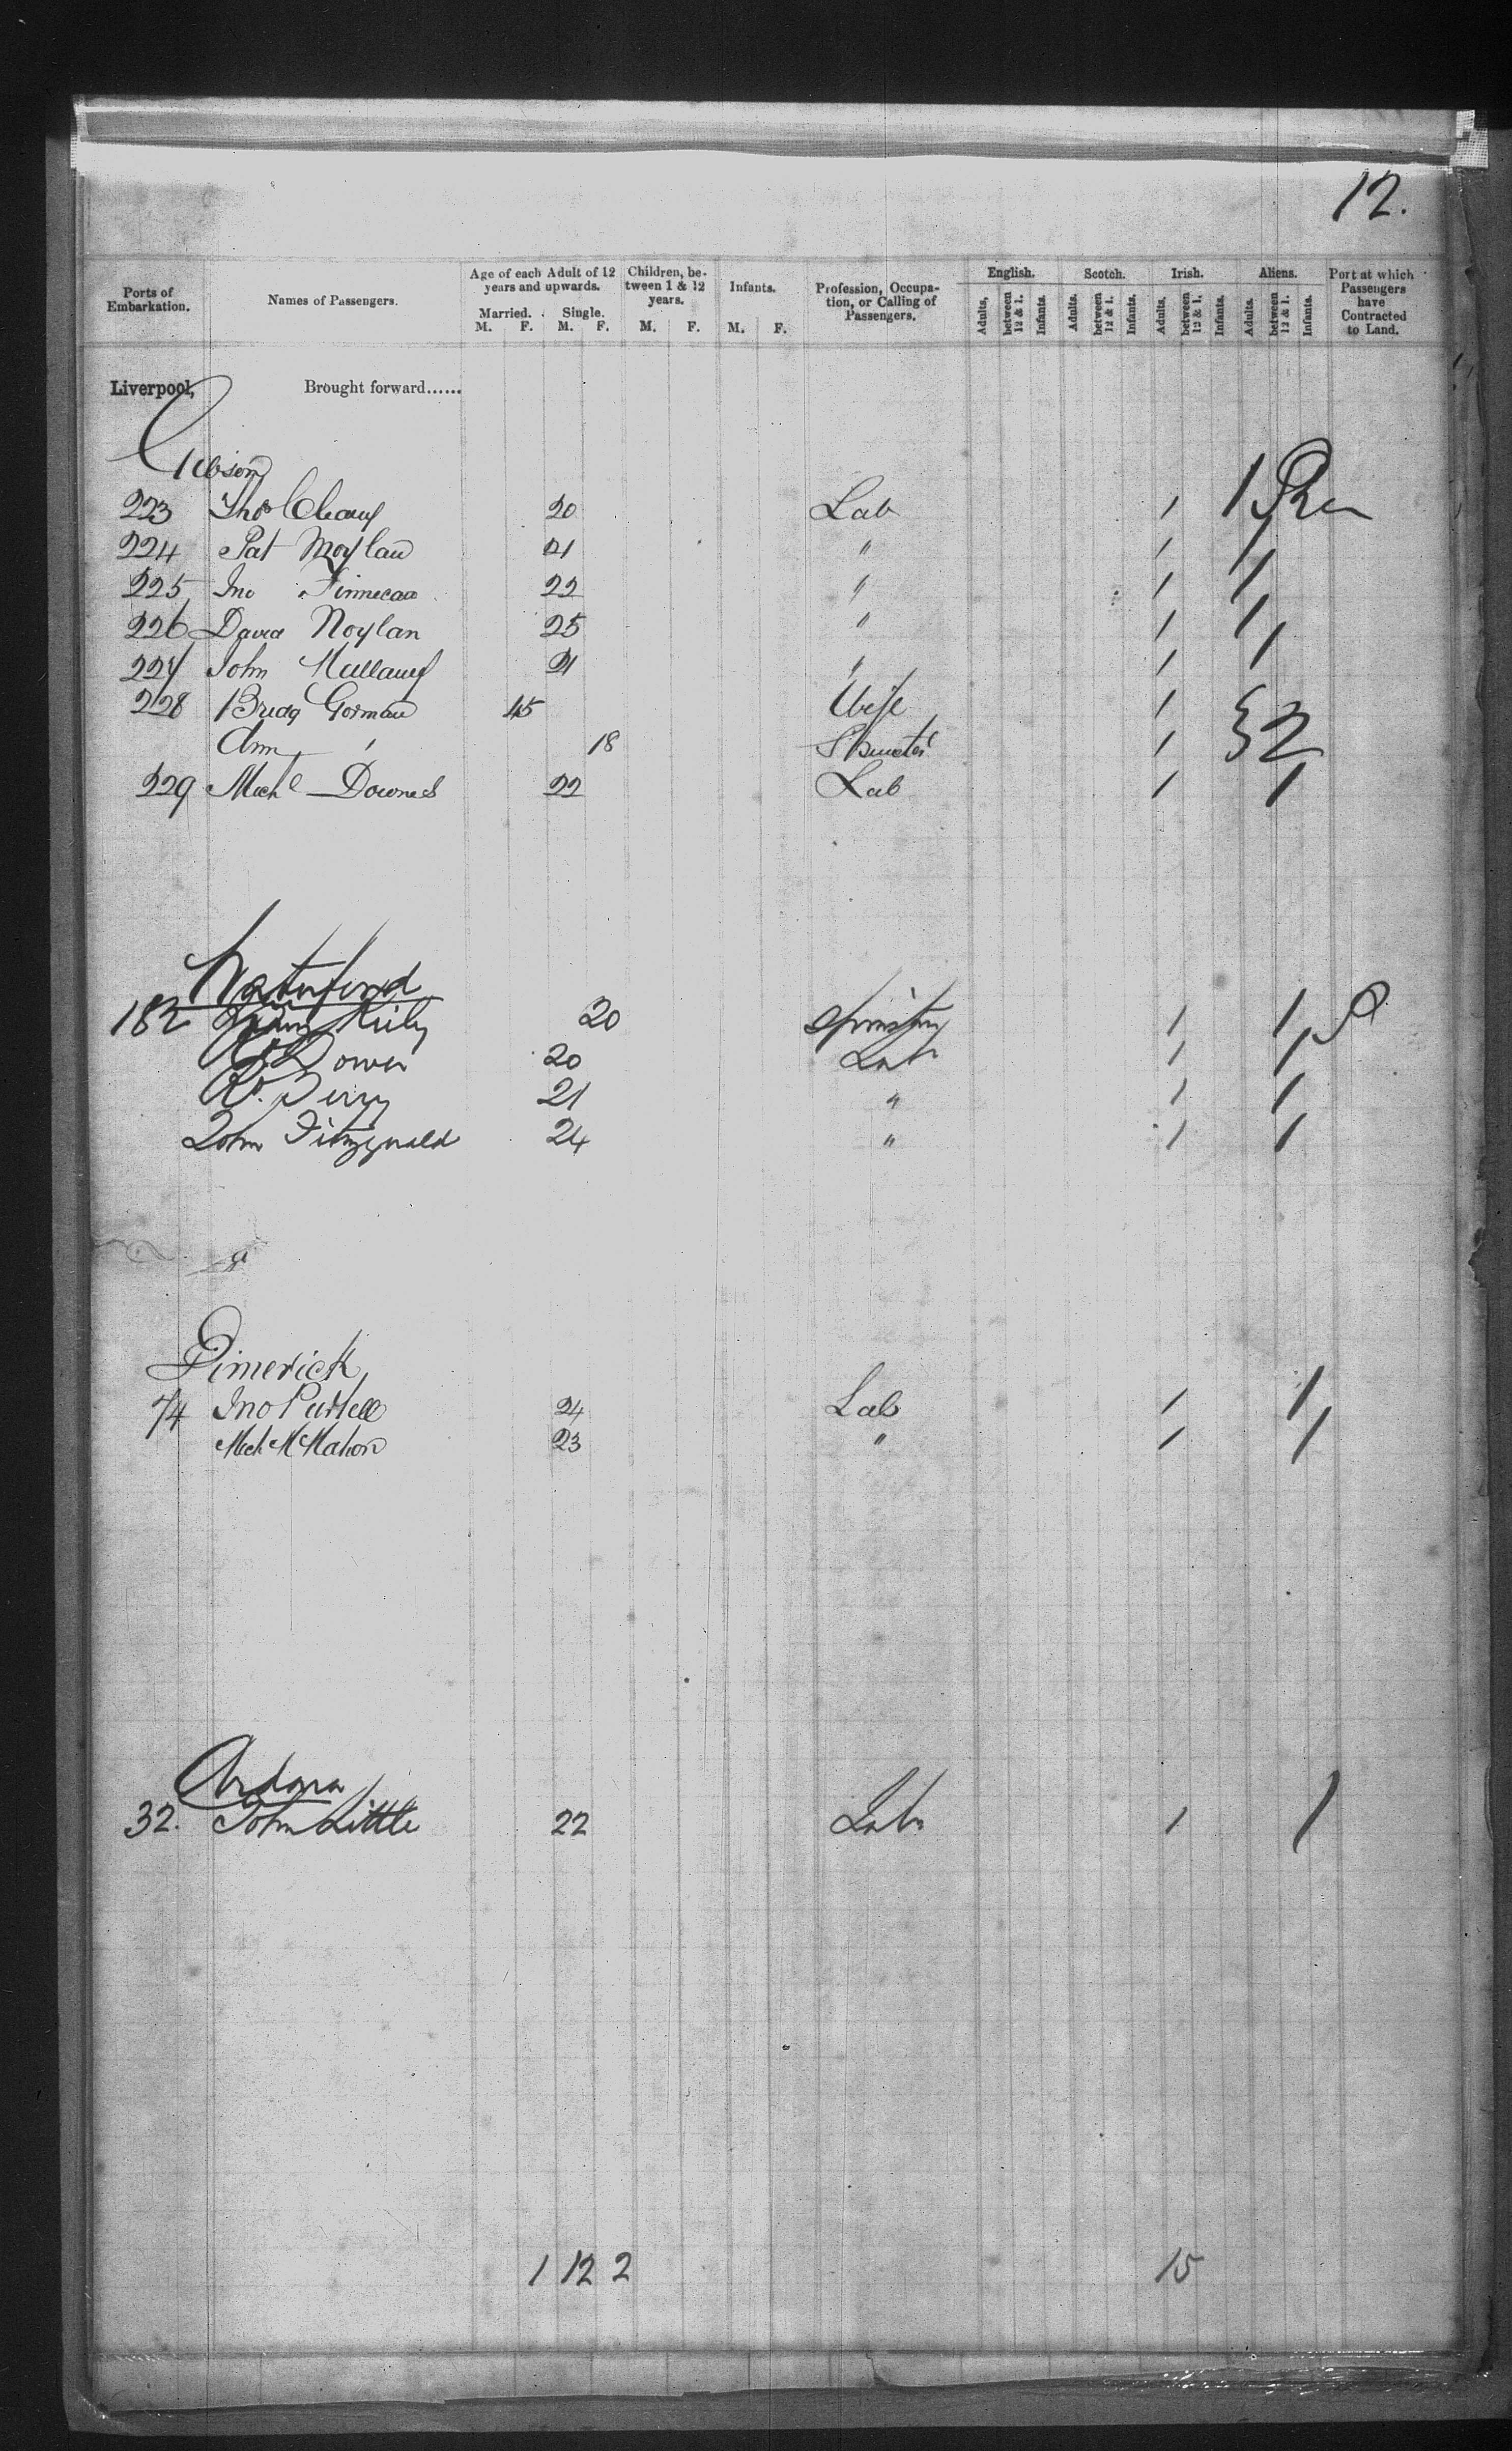 12.
Ports of Embarkation. Names of Passengers. Age of each Adult of 12 years and upwards. Married. M. F. Single. M. F. Children, between 1 & 12 years. M. F. Infants. M. F. Profession, Occupation, or Calling of Passengers. English. Adults, between 12 & 1. Infants. Scotch. Adults. between 12 & 1. Infants. Irish. Adults, between 12 & 1. Infants. Aliens. Adults. between 12 & 1. Infants. Port at which Passengers have Contracted to Land.
Liverpool, Brought forward......
223 Thos Cleary 20 Lab 1 1
224 Pat Moylan 21 " 1 1
225 Jno Finnecan 22 " 1 1
226 David Noylan 25 " 1 1
227 John Mullany 21 " 1 1
228 Bridg Gorman 45 Wife 1 2
Ann " 18 Spinster 1
229 Michl Downes 22 Lab 1 1
Waterford
182 Kiely 20 Spinster 1 1
Power 20 Lab 1 1
21 " 1 1
John Fitzgerald 24 " 1 1
Limerick
74 Jno Purtell 24 Lab 1 1
Mich McMahon 23 " 1 1
Ardara
32. John Little 22 Lab 1 1
1 12 2 15